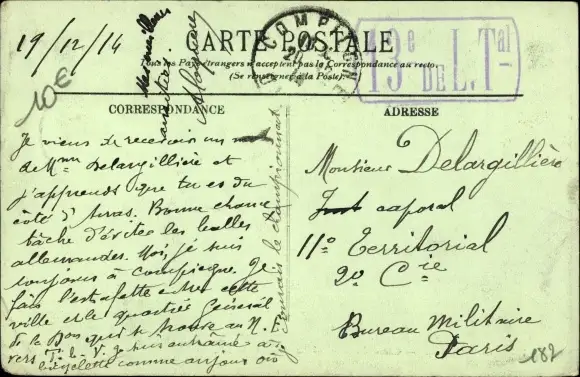 19/12/14
CARTE POSTALE
Tous les Pays étrangers n'acceptent pas la Correspondance au recto.
(Se renseigner à la Poste).
COMPIEGNE
13e
DE L. Tal
10€
CORRESPONDANCE
ADRESSE
Je viens de recevoir un
de Mme Delargillière et
j'apprends que tu es du
côté d'Arras. Bonne chance
tâche d'éviter les balles
allemandes. Moi je suis
toujours à Compiègne. Je
fais l'estafette entre cette
ville et le quartier Général
de la qui se trouve au N. E.
vers T. L. V. je suis entraîné à
bicyclette comme aujour où
jamais le championnat
Monsieur Delargillière
caporal
11e Territorial
2e Cie
Bureau Militaire
Paris
182